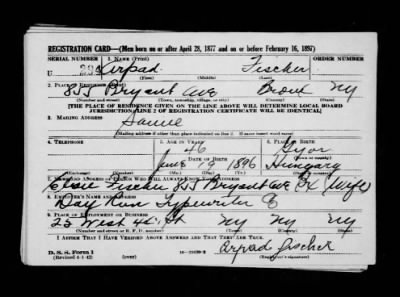 REGISTRATION CARD—(Men born on or after April 28, 1877 and on or before February 16, 1897)
SERIAL NUMBER 1. NAME (Print) ORDER NUMBER
U Arpad Fischer
(First) (Middle) (Last)
2. PLACE OF RESIDENCE (Print)
855 Bryant Ave Bronx NY
(Number and street) (Town, township, village, or city) (County) (State)
[THE PLACE OF RESIDENCE GIVEN ON THE LINE ABOVE WILL DETERMINE LOCAL BOARD
JURISDICTION; LINE 2 OF REGISTRATION CERTIFICATE WILL BE IDENTICAL]
3. MAILING ADDRESS
Same
[Mailing address if other than place indicated on line 2. If same insert word same]
4. TELEPHONE 5. AGE IN YEARS 6. PLACE OF BIRTH
46 Gyor
DATE OF BIRTH
June 19 1896 Hungary
7. NAME AND ADDRESS OF PERSON WHO WILL ALWAYS KNOW YOUR ADDRESS
Elsie Fischer 855 Bryant Ave Bx Wife
8. EMPLOYER'S NAME AND ADDRESS
Typewriter Co
9. PLACE OF EMPLOYMENT OR BUSINESS
25 West 44 St NY NY NY
(Number and street or R. F. D. number) (Town) (County) (State)
I AFFIRM THAT I HAVE VERIFIED ABOVE ANSWERS AND THAT THEY ARE TRUE.
D. S. S. Form 1
(Revised 4-1-42) Arpad Fischer